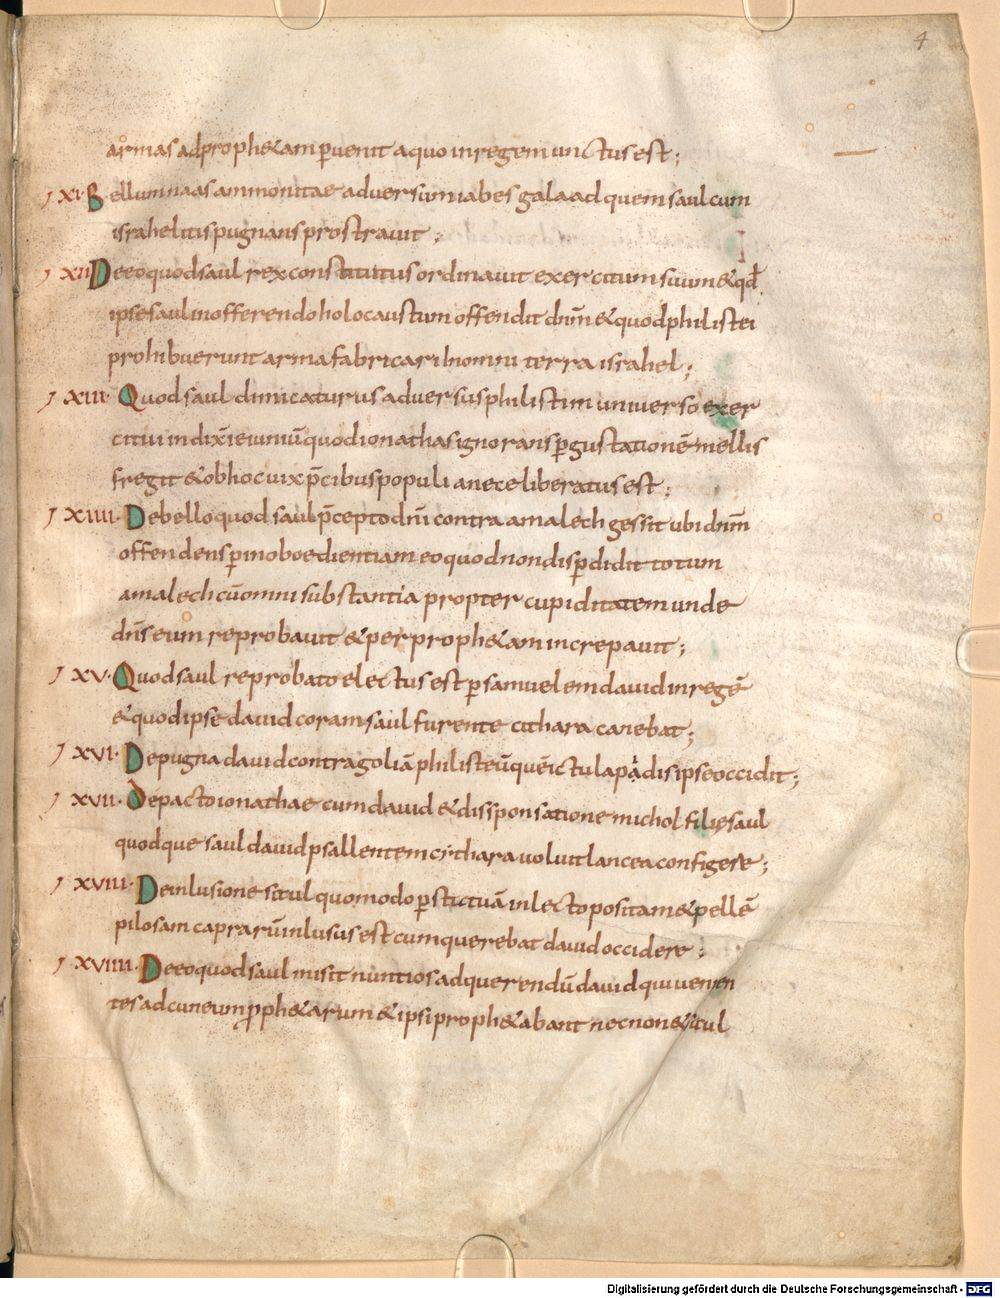 4
armas ad proph&am puenit a quo in regem unctus est;
XI. Bellum naas ammonitae adversum iabes galaad quem saul cum
israhelitis pugnans prostravit;
XII Deeo quod saul rex constitutus ordinavit exercitum suum & qd
ipse saul in offerendo holocaustum offendit dnm & quod philistei
prohibuerunt arma fabricari in omni terra israhel;
XIII. Quod saul dimicaturus adversus philistim universo exer
citui indixi ieiuniū quod ionathas ignorans p gustationē mellis
fregit & ob hoc vix p̄cibus populi a nece liberatus est;
XIIII. De bello quod saul p̄cepto dn̄i contra amalech gessit ubi dnm
offendens p inoboedientiam eo quod non dispdidit totum
amalech cū omni substantia propter cupiditatem unde
dn̄s eum reprobavit & per proph&am increpavit;
XV. Quod saul reprobato electus est p samuelem david in regē
& quod ipse david coram saul furente cithara canebat;
XVI. De pugna david contra goliā philisteū quē ictu lapadis ipse occidit;
XVII. De pacto ionathae cum david & disponsatione michol filię saul
quodque saul david psallentem cithara voluit lancea configere;
XVIII. De inlusione saul quomodo p statuā in lecto positam & pellē
pilosam caprarū inlusus est cum querebat david occidere;
XVIIII. Deeo quod saul misit nuntios ad querendū david qui venien
tes ad cuneum pph&arum & ipsi proph&abant nec non & saul
Digitalisierung gefördert durch die Deutsche Forschungsgemeinschaft - DFG